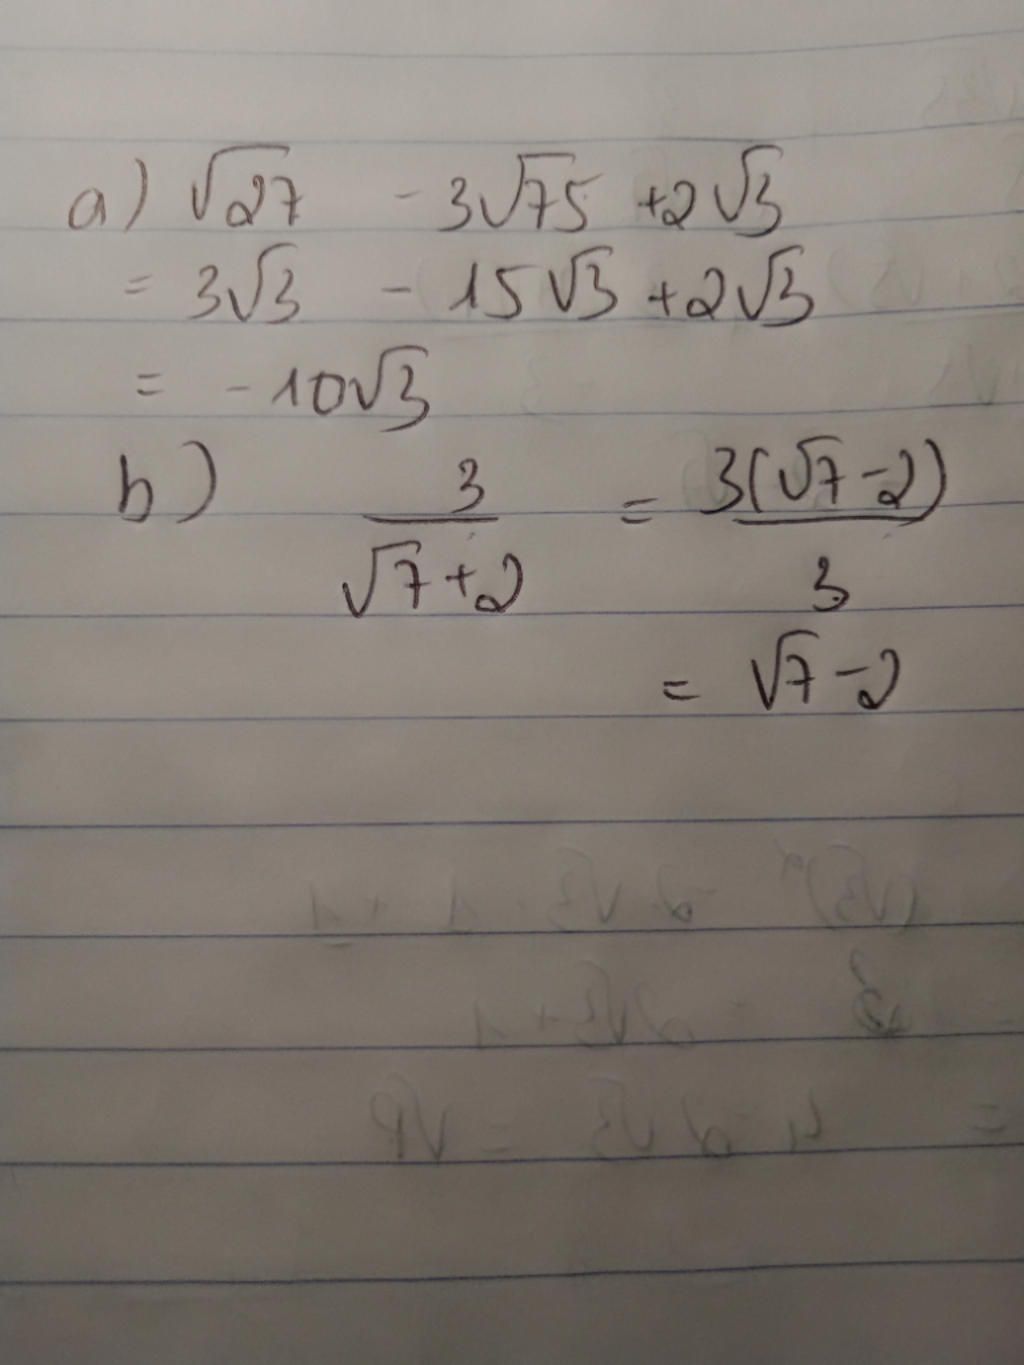 a) √27 - 3√75 + 2√3
= 3√3 - 15√3 + 2√3
= -10√3
b) 3/(√7+2) = 3(√7-2)/3
= √7-2